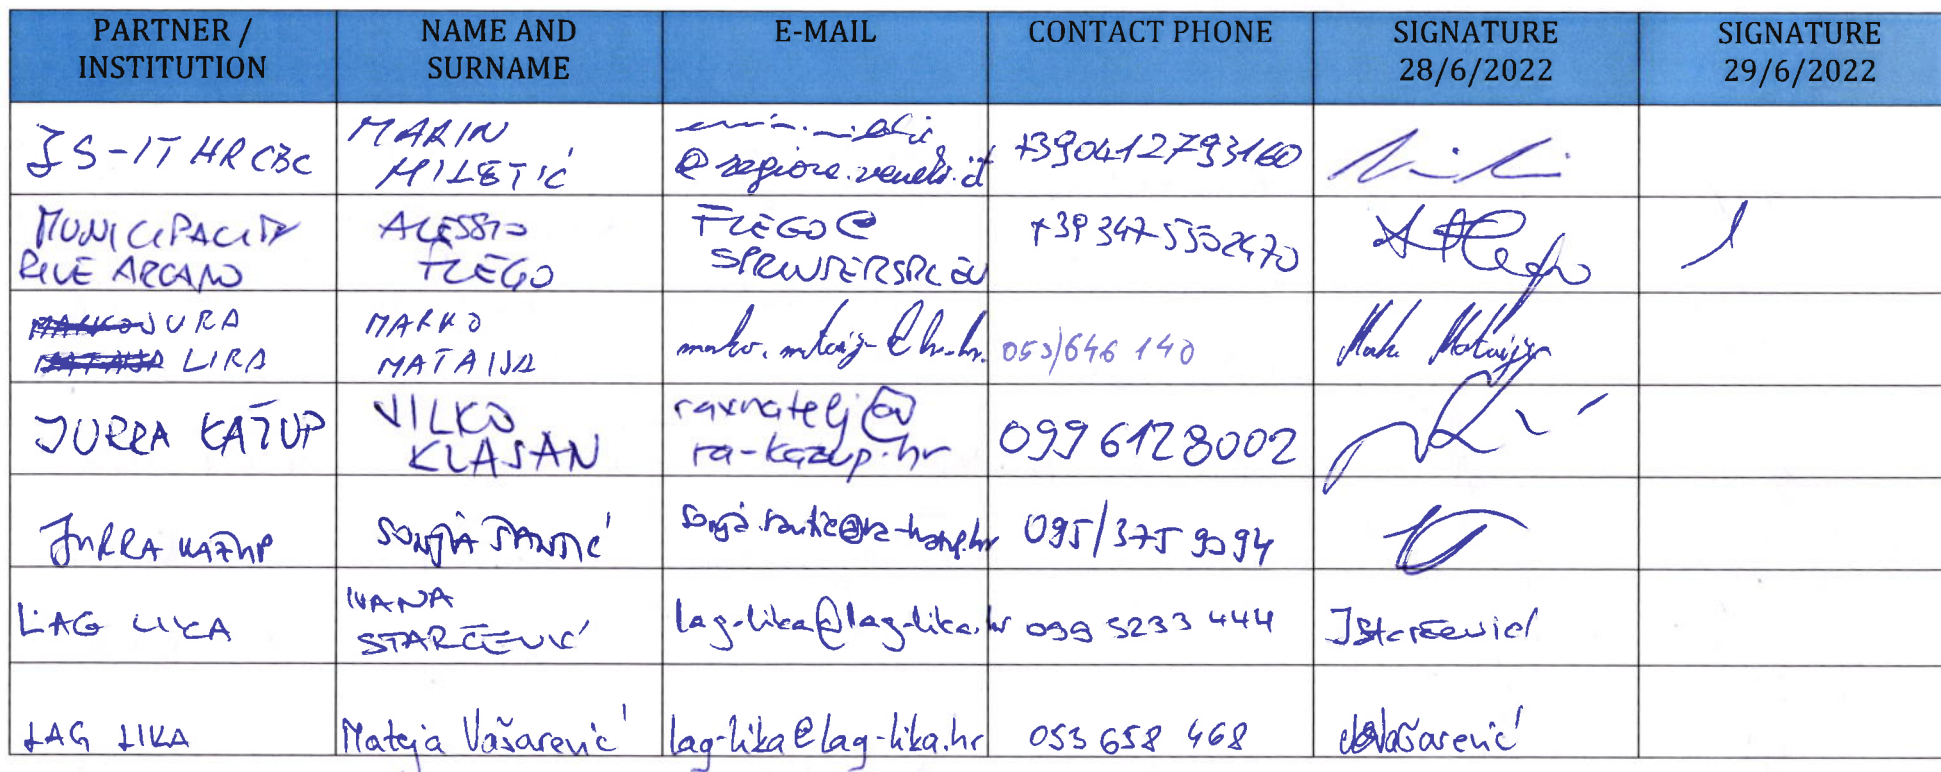 PARTNER / INSTITUTION NAME AND SURNAME E-MAIL CONTACT PHONE SIGNATURE 28/6/2022 SIGNATURE 29/6/2022
JS-IT HR CBC MARIN MILETIĆ @regione.veneto.it +390412793160
MUNICIPALITY RIVE ARCANO ALESSIO FLEGO FLEGO@ +39 347 5502470
JURA LIRA MARKO MATAIJA 053/646 140 Mataija
JURRA KAŽUP VILKO KLASAN ravnatelj@ ra-kazup.hr 099 6128002
JURRA KAŽUP SONJA ŠANTIĆ 095/375 9094
LAG LIKA IVANA STARČEVIĆ lag-lika@lag-lika.hr 099 5233 444 IStarčević
LAG LIKA Mateja Vašarević lag-lika@lag-lika.hr 053 658 468 Vašarević